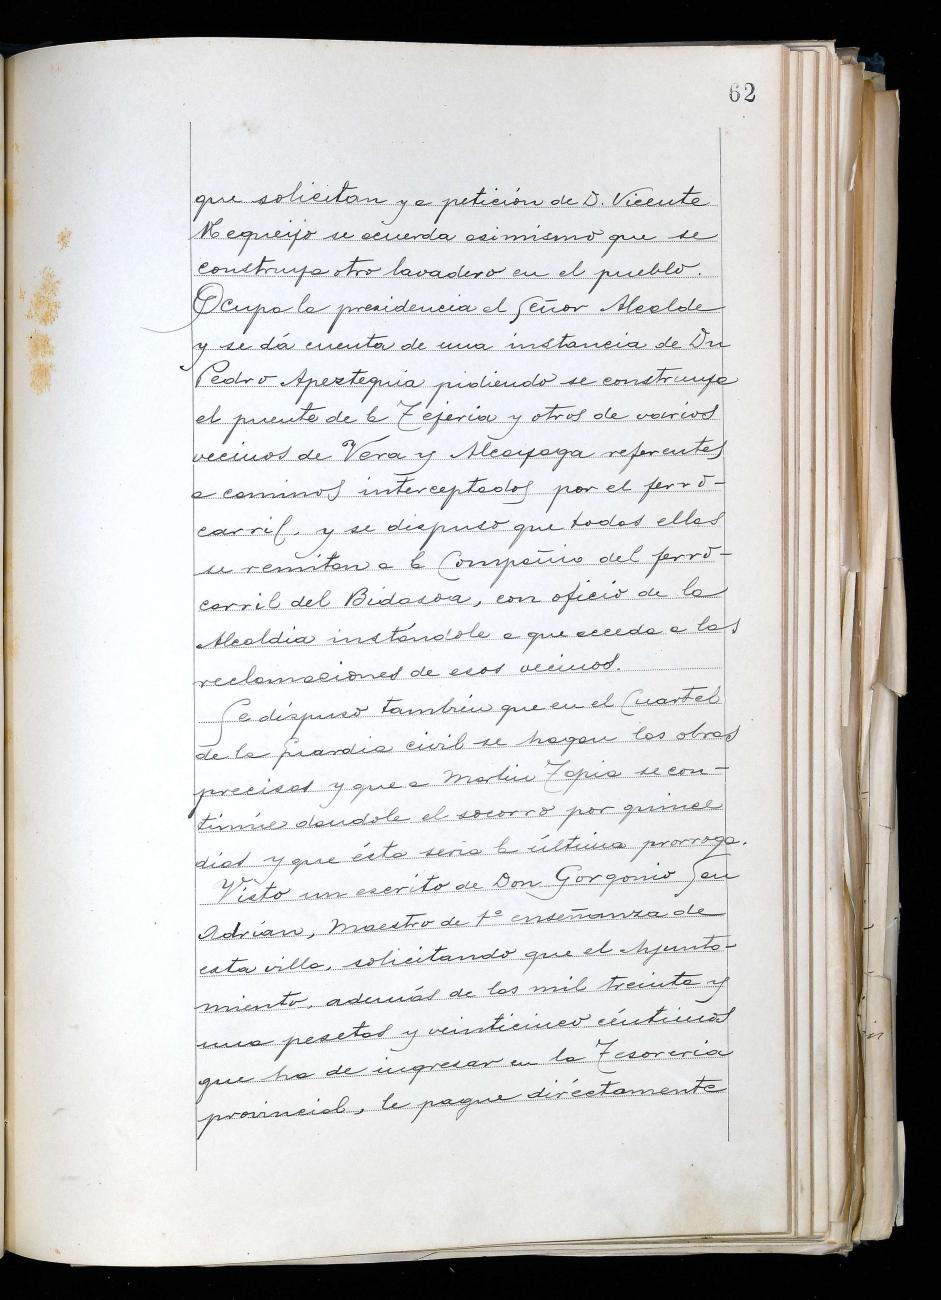 62
que solicitan y a petición de D. Vicente
Requeijo se acuerda asimismo que se
construya otro lavadero en el pueblo.
Ocupa la presidencia el Señor Alcalde
y se dá cuenta de una instancia de Dn
Pedro Apeztequia pidiendo se construya
el puente de la Tejeria y otros de varios
vecinos de Vera y Alcayaga referentes
a caminos interceptados por el ferro-
carril, y se dispuso que todas ellas
se remitan a la Compañia del ferro-
carril del Bidasoa, con oficio de la
Alcaldia instandole a que acceda a las
reclamaciones de esos vecinos.
Se dispuso también que en el Cuartel
de la Guardia civil se hagan las obras
precisas y que a Martin Tapia se con-
tinúe dandole el socorro por quince
dias y que ésta seria la última prorroga.
Visto un escrito de Don Gorgonio San
Adrian, Maestro de 1ª enseñanza de
esta villa, solicitando que el Ayunta-
miento, además de las mil treinta y
una pesetas y veinticinco céntimos
que ha de ingresar en la Tesoreria
provincial, le pague diréctamente